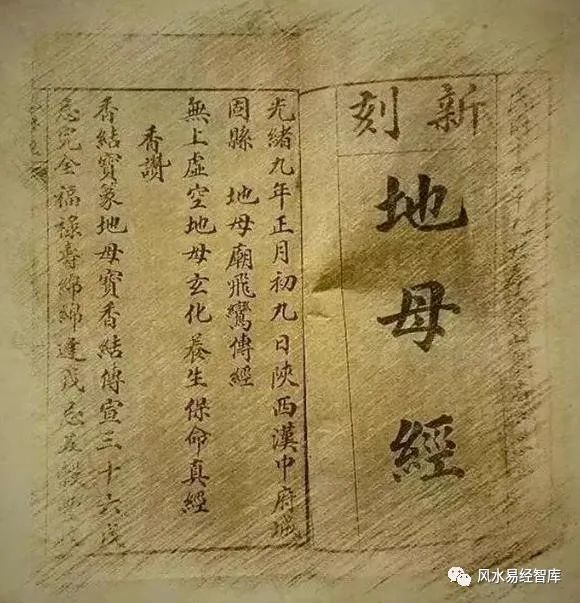 新刻
地母經
光緒九年正月初九日陝西漢中府城
固縣 地母廟飛鸞傳經
無上虛空地母玄化養生保命真經
香讚
香結寶篆地母寶香結傳宣三十六戊
忌完全福祿壽綿綿逢戊忌
风水易经智库